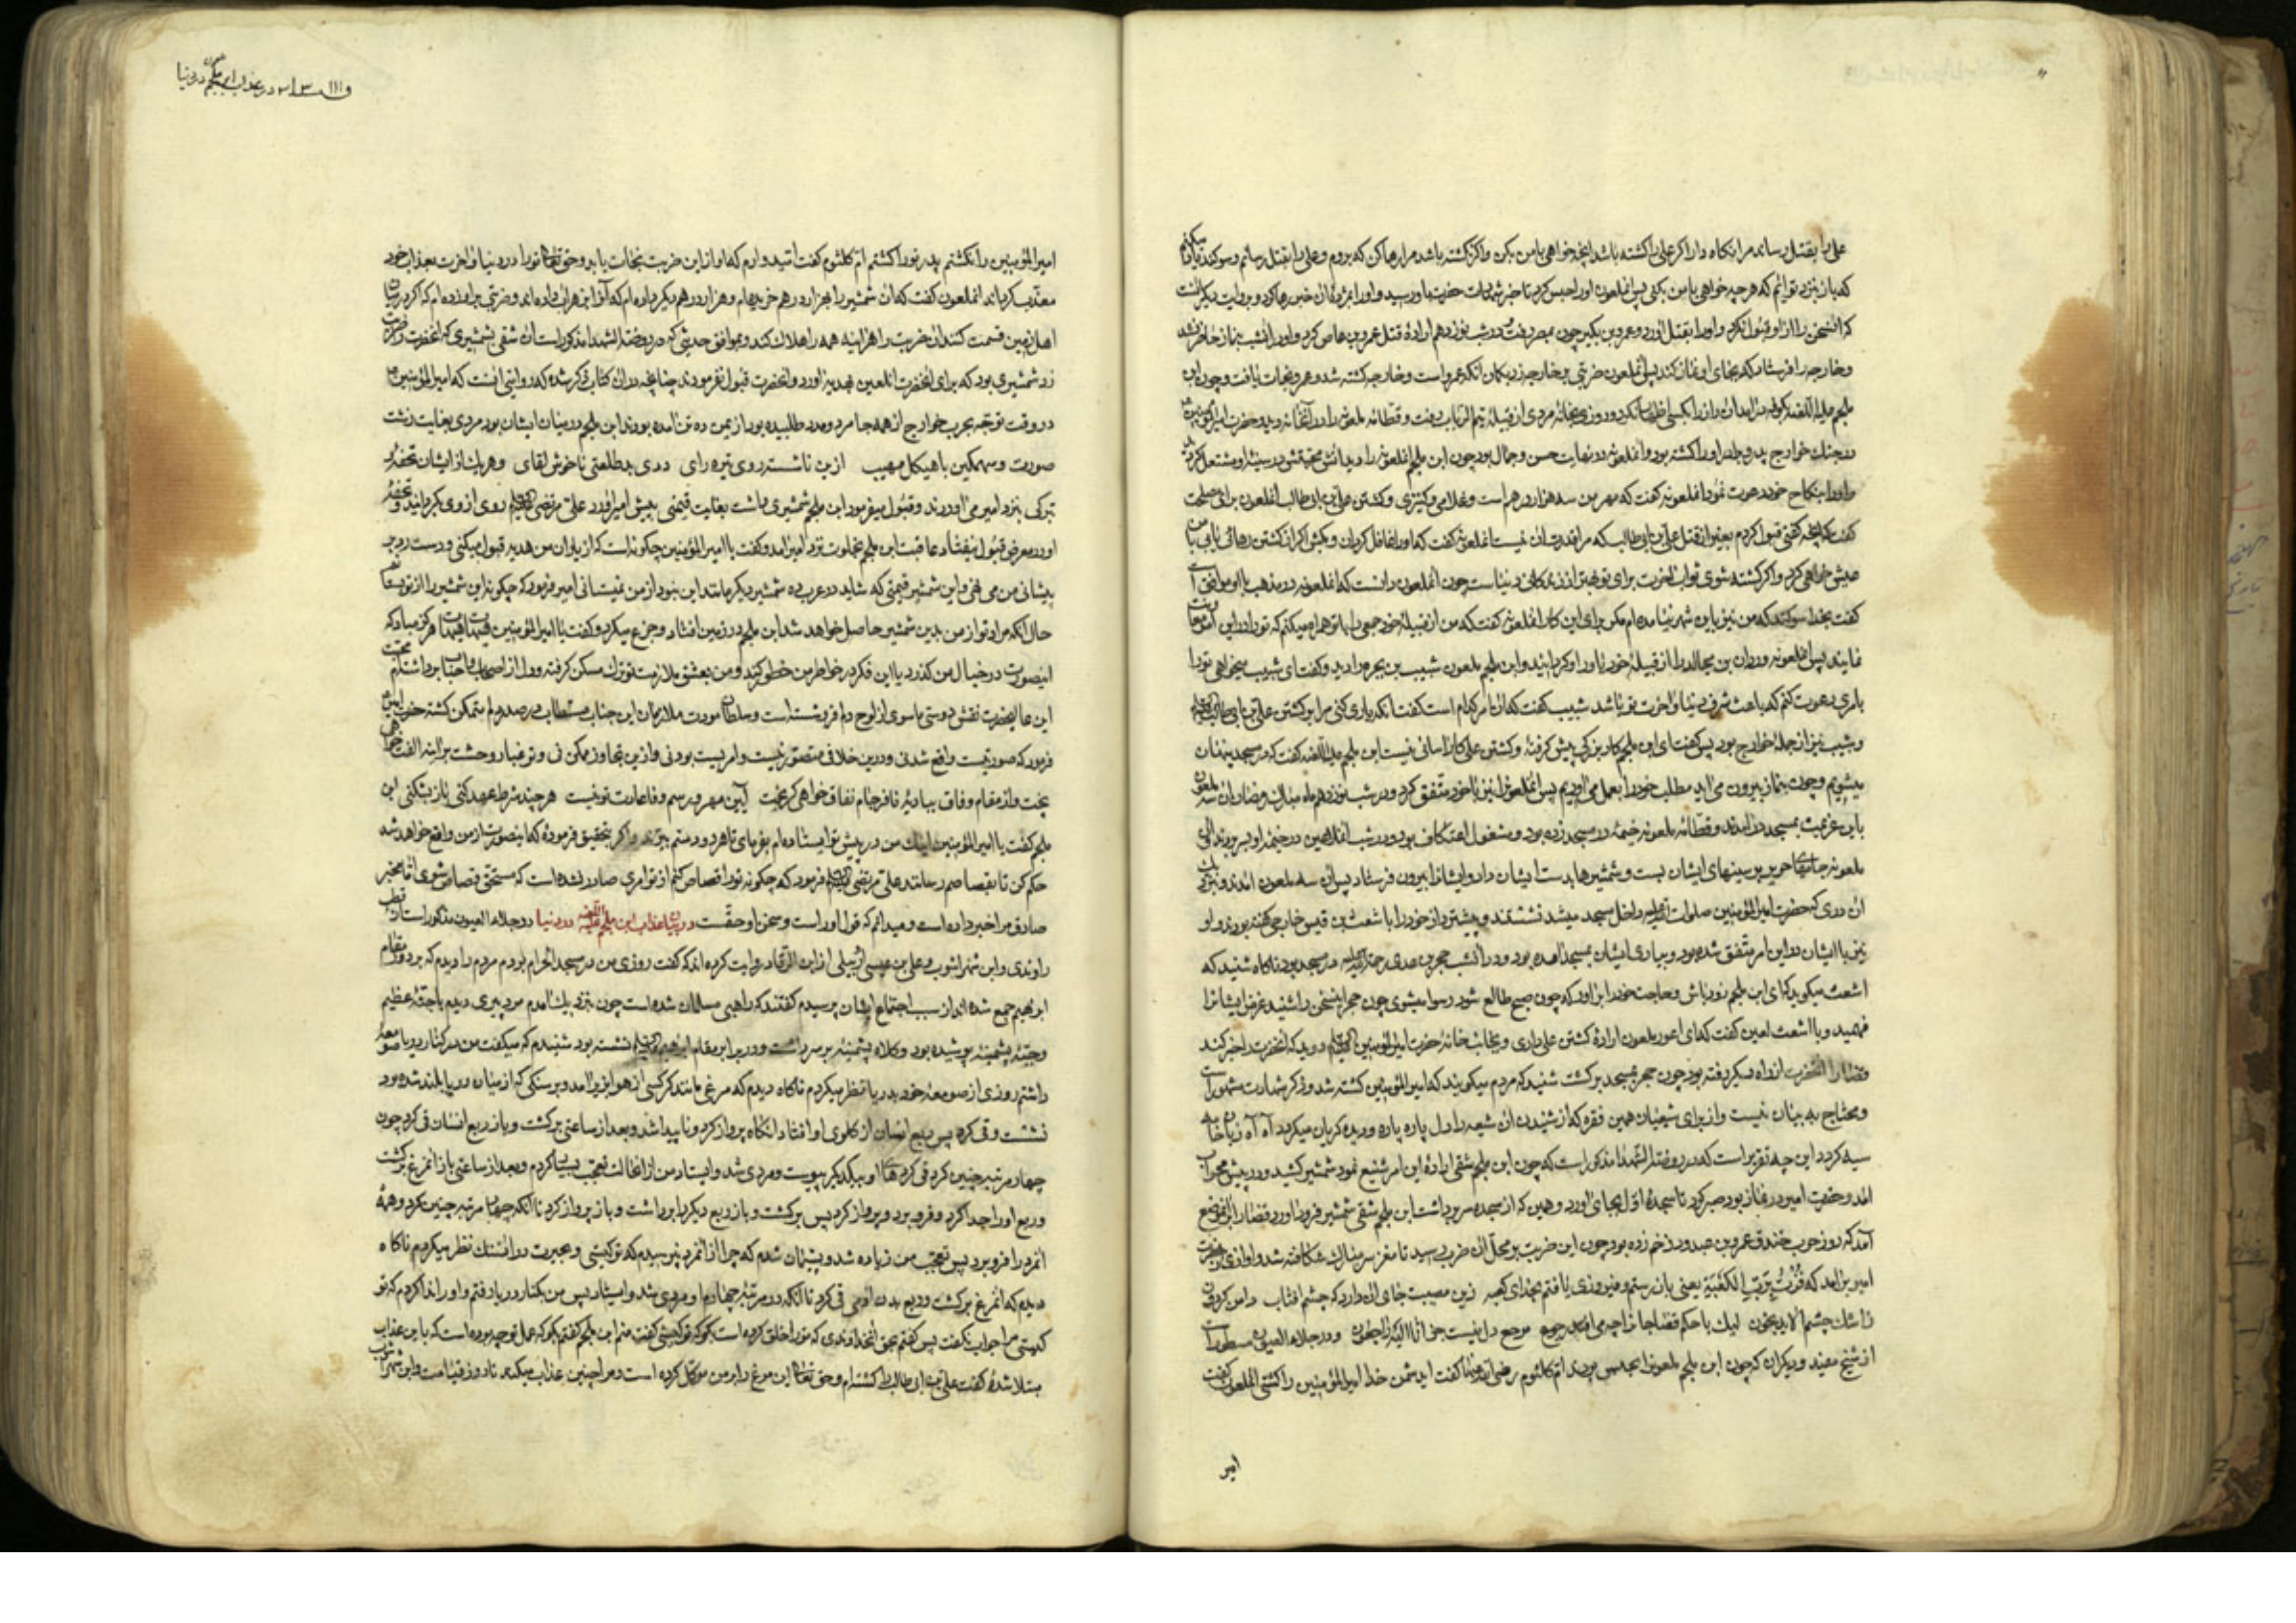 علی را بقتل رساند مرا نگاه دار اگر علی را کشته باشد آنچه خواهی با من بکن و اگر نکشته باشد مرا رها کن که بروم و علی را بقتل رسانم و سوکند یاد میکنم
که باز بنزد تو آیم که هر چه خواهی با من بکنی پس آنملعون او را حبس کرد تا خبر شهادت حضرت باو رسید و او را رها کرد و بروایت دیگر آنست
که آنسخن را از او قبول نکرد و او را بقتل آورد و عمرو بن بکر چون بمصر رفت در شب نوزدهم ارادهٔ قتل عمرو بن عاص کرد و او در آنشب بنماز حاضر نشد
و خارجه را فرستاد که بجای او نماز کند پس آنملعون ضربتی بر خارجه زد بکمان آنکه عمرو است و خارجه کشته شد و عمرو نجات یافت و چون ابن
ملجم علیه اللعنه بکوفه در آمد آن راز را بکسی اظهار نکرد و روزی بخانهٔ مردی از قبیلهٔ تیم الرباب رفت و قطامهٔ ملعونه را در آنخانه دید و حضرت امیر المؤمنین
در جنك خوارج پدر و برادر او را کشته بود و آنملعونه در نهایت حسن و جمال بود چون ابن ملجم آنملعونه را دید آتش محبتش در سینهٔ او مشتعل کردید
و او را بنکاح خود دعوت نمود آنملعونه کفت که مهر من سه هزار درهم است و غلامی و کنیزی و کشتن علی بن ابی طالب آنملعون برای مصلحت
کفت که آنچه کفتی قبول کردم بغیر از قتل علی بن ابی طالب که مرا قدرت آن نیست آنملعونه کفت که او را غافل کردان و بکش اگر از کشتن رهائی یابی با من
عیش خواهی کرد و اگر کشته شوی ثواب آخرت برای تو بهتر از زندکانی دنیاست چون آنملعون دانست که آنملعونه در مذهب با او موافق است
کفت بخدا سوکند که من نیز باین شهر نیامده‌ام مگر برای این کار آنملعونه کفت که من از قبیلهٔ خود جمعی را با تو همراه میکنم که تو را در این امر معاونت
نمایند پس آنملعونه وردان بن مجالد را از قبیلهٔ خود یاور او کردانید و ابن ملجم ملعون شبیب بن بجره را دید و کفت ای شبیب میخواهی تو را
بامری دعوت کنم که باعث شرف دنیا و آخرت تو باشد شبیب کفت که آن امر کدام است کفت آنکه یاری کنی مرا بر کشتن علی بن ابی طالب علیه السلام
و شبیب نیز از جملهٔ خوارج بود پس کفت ای ابن ملجم کار بزرکی پیش کرفتهٔ و کشتن علی کار آسانی نیست ابن ملجم علیه اللعنه کفت که در مسجد پنهان
میشویم و چون بنماز بیرون می آید مطلب خود را بعمل می آوریم پس آنملعون را نیز با خود متفق کرد و در شب نوزدهم ماه مبارك رمضان آن سه ملعون
باین عزیمت بمسجد در آمدند و قطامهٔ ملعونه خیمهٔ در مسجد زده بود و مشغول اعتکاف بود و در شب آنملاعین در خیمهٔ او بسر بردند آن
ملعونه جامهای حریر بر سینهای ایشان بست و شمشیرها بدست ایشان داد و ایشان را بیرون فرستاد پس آن سه ملعون آمدند و نزدیك
آن دری که حضرت امیر المؤمنین صلوات الله علیه داخل مسجد میشد نشستند و پیشتر راز خود را با اشعث بن قیس خارجی کفته بودند و او
نیز با ایشان در این امر متفق شده بود و بیاری ایشان بمسجد آمده بود و در آنشب حجر بن عدی رحمة الله علیه در مسجد بود ناکاه شنید که
اشعث میکوید که ای ابن ملجم زود باش و حاجت خود را بر آور که چون صبح طالع شود رسوا میشوی چون حجر اینسخن را شنید غرض ایشانرا
فهمید و با اشعث لعین کفت که ای اعور ملعون ارادهٔ کشتن علی داری و بجانب خانهٔ حضرت امیر المؤمنین علیه السلام دوید که آنحضرت را خبر کند
و قضا را آنحضرت از راه دیگر رفته بود چون حجر بمسجد برکشت شنید که مردم میکویند که امیر المؤمنین کشته شد و ذکر شهادت مشهور است
و محتاج به بیان نیست و از برای شیعیان همین فقره که از شنیدن آن شیعه را دل پاره پاره و دیده کریان میکردد آه آه زبان خامه
سیه کردد این چه تقریر است که در روضة الشهدا مذکور است که چون ابن ملجم شقی ارادهٔ این امر شنیع نمود شمشیر کشید و در پیش محراب
آمد و حضرت امیر در نماز بود صبر کرد تا سجدهٔ اول بجای آورد و همین که از سجده سر برداشت ابن ملجم شقی شمشیر فرود آورد قضا را بر آن موضع
آمد که روز حرب خندق عمرو بن عبدود زخم زده بود چون این ضربت بر محل آن ضرب رسید تا مغز سر مبارك شکافته شد و آوازی از حضرت
امیر بر آمد که فُزْتُ بِرَبِّ الکَعْبَة یعنی باز رستم و فیروزی یافتم بخدای کعبه زین مصیبت جای آن دارد که چشم آفتاب دامن کردون
ز اشك چشم آلاید بخون لیك با حکم قضا جا نرا چه می افتد رجوع مرجع دل نیست جز انا الیه راجعون و در جلاء العیون مسطور است
از شیخ مفید و دیگران که چون ابن ملجم ملعون را بحبس بردند ام کلثوم رضی الله عنها کفت ای دشمن خدا امیر المؤمنین را کشتی آنملعون کفت
امیر
در عذاب ابن ملجم در دنیا
امیر المؤمنین را نکشتم پدر تو را کشتم ام کلثوم کفت امیدوارم که او از این ضربت نجات یابد و حق تعالی تو را در دنیا و آخرت بعذاب خود
معذب کرداند آنملعون کفت که آن شمشیر را بهزار درهم خریده‌ام و هزار درهم دیگر داده‌ام که آنرا بزهر آب داده‌اند و ضربتی بر او زده‌ام که اگر در میان
اهل زمین قسمت کنند آن ضربت را هر آینه همه را هلاك کند و بموافق حدیثی که در روضة الشهدا مذکور است آن شقی بشمشیری که آنحضرت را ضربت
زد شمشیری بود که برای آنحضرت آنلعین بهدیه آورد و آنحضرت قبول نفرمودند چنانچه در آن کتاب ذکر شده که روایتی آنست که امیر المؤمنین
در وقت توجه بحرب خوارج از همه جا مرد و مدد طلبیده بود از یمن ده تن آمده بودند ابن ملجم در میان ایشان بود مردی بغایت زشت
صورت و سهمکین با هیکل مهیب ازین ناشسته روی تیره رای ددی بدطلعتی ناخوش لقای و هر یك از ایشان تحفه و
تبرکی بنزد امیر می آوردند و قبول میفرمود ابن ملجم شمشیری داشت بغایت قیمتی پیش امیر آورد علی مرتضی علیه السلام روی از وی بگردانید و تحفهٔ
او در معرض قبول نیفتاد عاقبت ابن ملجم بخلوت نزد امیر آمد و کفت یا امیر المؤمنین چگونه است که از یاران من هدیه قبول میکنی و دست رد بر
پیشانی من می نهی و این شمشیر قیمتی که شاید در عرب ده شمشیر دیگر مانند این نبود از من نمیستانی امیر فرمود که چگونه این شمشیر را از تو بستانم
حال آنکه مراد تو از من بدین شمشیر حاصل خواهد شد ابن ملجم در زمین افتاد و جزع میکرد و کفت یا امیر المؤمنین هیهات هیهات هرکز مباد که
اینصورت در خیال من کذرد یا این فکر در خاطر من خطور کند و من بعشق ملازمت تو ترك مسکن کرفته و دل از اصحاب و احباب برداشته‌ام محبت
این عالیحضرت نقش دوستی ماسوی از لوح دل فروشسته است و سلطان مودت ملازمان این جناب مستطاب در صدر دلم متمکن کشته حضرت امیر
فرمود که صورتیست واقع شدنی و درین خلافی متصور نیست و امریست بودنی و ازین تجاوز ممکن نی و تو غبار وحشت بر آینه الفت خواهی
بیخت و از مقام وفاق ببادیهٔ نافرجام نفاق خواهی کریخت آیین مهر و رسم وفا عادت تو نیست هر چند شرط عهد کنی باز بشکنی ابن
ملجم کفت یا امیر المؤمنین اینك من در پیش تو ایستاده‌ام بفرمای تا هر دو دستم ببرند و اگر بتحقیق فرمودهٔ که اینصورت از من واقع خواهد شد
حکم کن تا بقصاصم رسانند علی مرتضی علیه السلام فرمود که چگونه تو را قصاص کنم از تو امری صادر نشده است که مستحق قصاص شوی اما مخبر
صادق مرا خبر داده است و میدانم که قول او راست و سخن او حقست در بیان عذاب ابن ملجم علیه اللعنه در دنیا در جلاء العیون مذکور است از قطب
راوندی و ابن شهر اشوب و علی بن عیسی اربلی از ابن الرقاد روایت کرده‌اند که کفت روزی من در مسجد الحرام بودم مردم را دیدم که بر دور مقام
ابرهیم جمع شده‌اند از سبب اجتماع ایشان پرسیدم کفتند که راهبی مسلمان شده است چون نزدیك شدم مرد پیری دیدم با جثهٔ عظیم
و جبهٔ پشمینه پوشیده بود و کلاه پشمینه بر سر داشت و در برابر مقام ابرهیم علیه السلام نشسته بود شنیدم که میکفت من در کنار دریا صومعهٔ
داشتم روزی از صومعهٔ خود بدریا نظر میکردم ناکاه دیدم که مرغی مانند کرکسی از هوا بزیر آمد و بر سنگی که از میان دریا بلند شده بود
نشست و قی کرد پس ربع انسان از کلوی او افتاد آنکاه پرواز کرد و ناپیدا شد و بعد از ساعتی برکشت و باز ربع انسان قی کرد چون
چهار مرتبه چنین کرد قی کردهای او بیکدیگر پیوست و مردی شد و ایستاد من از آنحالت تعجب بسیار کردم و بعد از ساعتی باز آنمرغ برکشت
و ربع او را جدا کرد و فرو برد و پرواز کرد پس برکشت و باز ربع دیگر را برداشت و باز پرواز کرد تا آنکه چهار مرتبه چنین کرد و همهٔ
آنمرد را فرو برد پس تعجب من زیاده شد و پشیمان شدم که چرا از آنمرد نپرسیدم که تو کیستی و بحیرت در آنسنك نظر میکردم ناکاه
دیدم که آنمرغ برکشت و ربع بدن آدمی قی کرد تا آنکه در مرتبهٔ چهارم او مردی شد و ایستاد پس من بکنار دریا رفتم و او را ندا کردم که تو
کیستی مرا جواب نکفت پس کفتم بحق آنخداوندی که تو را خلق کرده است بگو که تو کیستی کفت منم ابن ملجم کفتم بگو که عمل تو چه بوده است که باین عذاب
مبتلا شدهٔ کفت علی بن ابی طالب را کشته‌ام و حق تعالی این مرغ را بر من موکل کرده است و مرا چنین عذاب میکند تا روز قیامت و ابن شهر آشوب